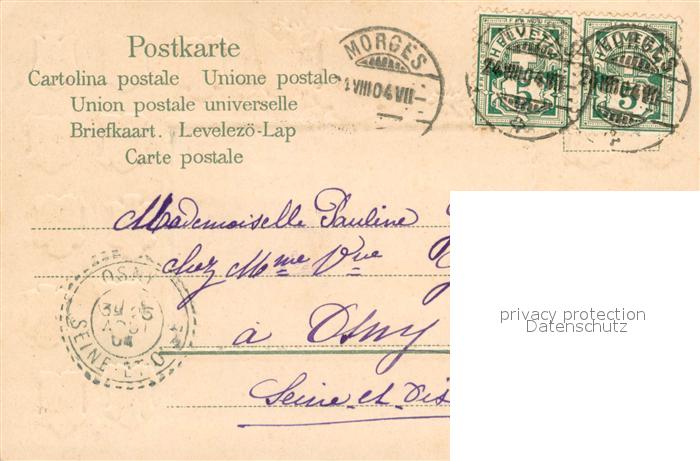 Postkarte
Cartolina postale Unione postale
Union postale universelle
Briefkaart. Levelezö-Lap
Carte postale
MORGES
VIII 04 VII
HELVETIA
24 VIII 04 VII
5
HELVETIA
VIII 04 VII
5
Mademoiselle Pauline
chez Mme Vve
à Osny
Seine et Ois
OSNY
AOUT
04
SEINE-ET-O
privacy protection
Datenschutz